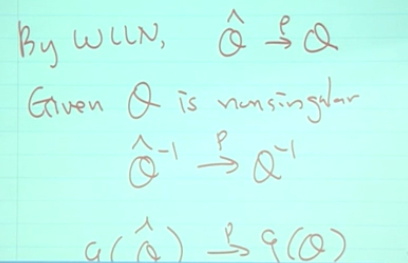 By WLLN, Q̂ →ᵖ Q
Given Q is nonsingular
Q̂⁻¹ →ᵖ Q⁻¹
g(Q̂) →ᵖ g(Q)